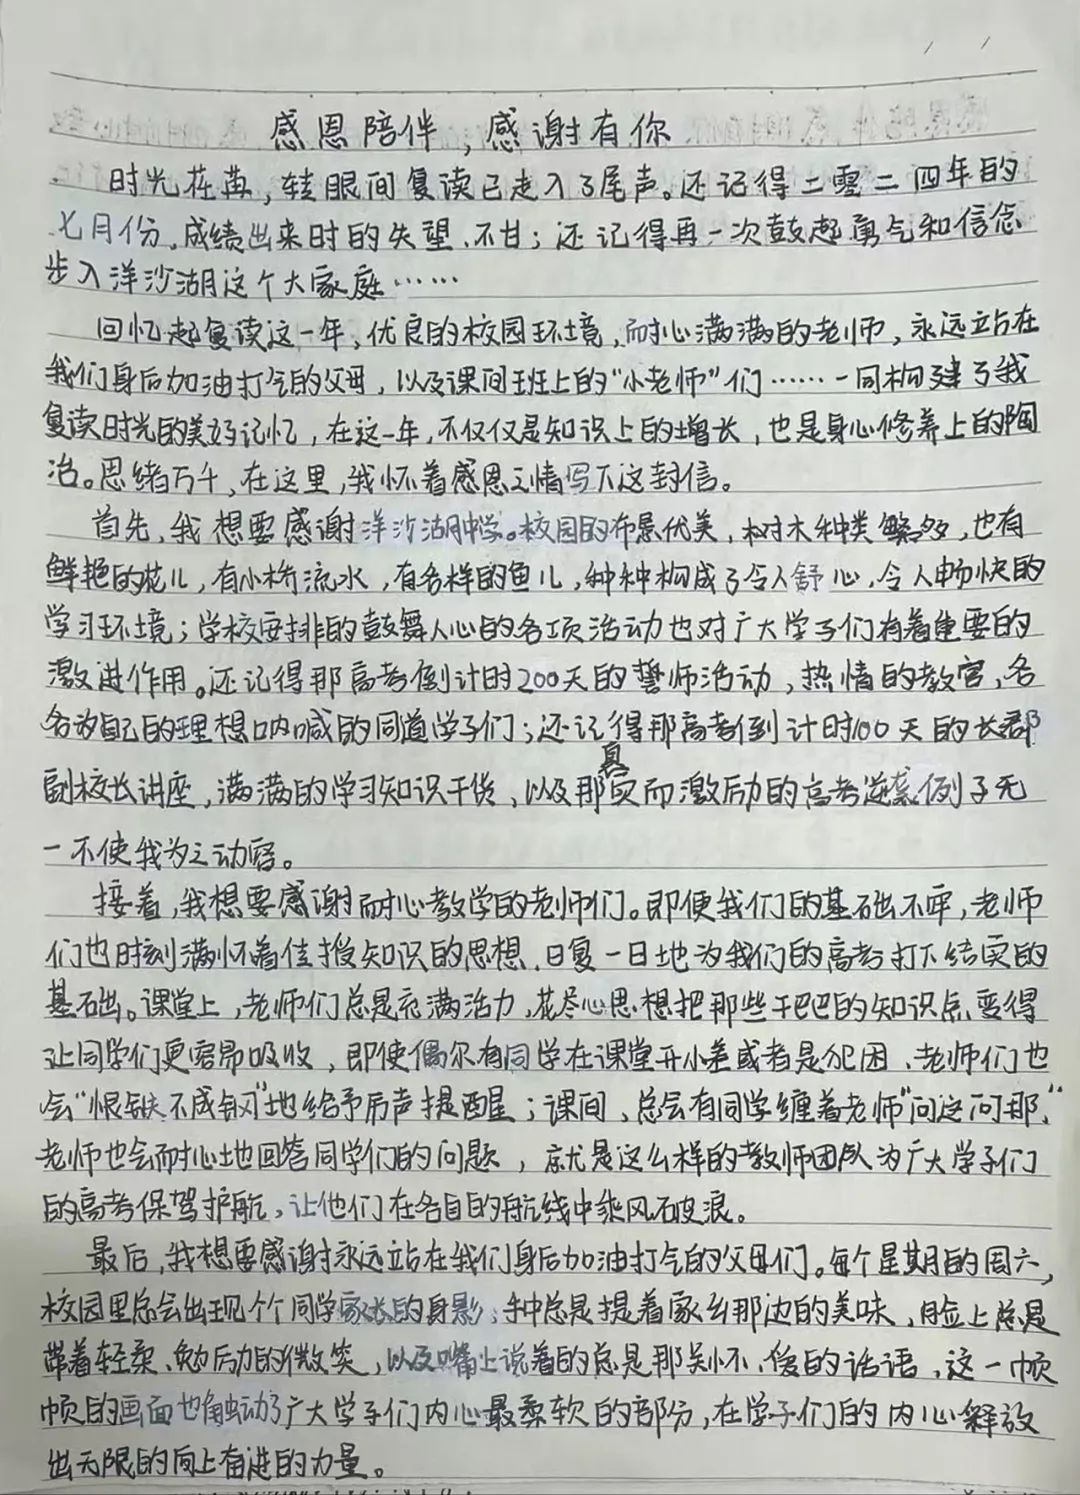 感恩陪伴，感谢有你
时光荏苒，转眼间复读已走入了尾声。还记得二零二四年的
七月份，成绩出来时的失望、不甘；还记得再一次鼓起勇气和信念
步入洋沙湖这个大家庭……
回忆起复读这一年，优良的校园环境，耐心满满的老师，永远站在
我们身后加油打气的父母，以及课间班上的“小老师”们……一同构建了我
复读时光的美好记忆，在这一年，不仅仅是知识上的增长，也是身心修养上的陶
冶。思绪万千，在这里，我怀着感恩之情写下这封信。
首先，我想要感谢洋沙湖中学。校园的布景优美，树木种类繁多，也有
鲜艳的花儿，有小桥流水，有各样的鱼儿，种种构成了令人舒心，令人畅快的
学习环境；学校安排的鼓舞人心的各项活动也对广大学子们有着重要的
激进作用。还记得那高考倒计时200天的誓师活动，热情的教官，各
各为自己的理想呐喊的同道学子们；还记得那高考倒计时100天的长郡
副校长讲座，满满的学习知识干货，以及那真实而激励的高考逆袭例子无
一不使我为之动容。
接着，我想要感谢耐心教学的老师们。即使我们的基础不牢，老师
们也时刻满怀着传授知识的思想，日复一日地为我们的高考打下结实的
基础。课堂上，老师们总是充满活力，花尽心思想把那些干巴巴的知识点变得
让同学们更容易吸收，即使偶尔有同学在课堂开小差或者是犯困，老师们也
会“恨铁不成钢”地给予厉声提醒；课间，总会有同学缠着老师“问这问那”，
老师也会耐心地回答同学们的问题，就是这么样的教师团队为广大学子们
的高考保驾护航，让他们在各自的航线中乘风破浪。
最后，我想要感谢永远站在我们身后加油打气的父母们。每个星期的周六，
校园里总会出现个个同学家长的身影；手中总是提着家乡那边的美味，脸上总是
带着轻柔、勉励的微笑，以及嘴上说着的总是那关怀、爱的话语，这一帧
帧的画面也触动了广大学子们内心最柔软的部分，在学子们的内心释放
出无限的向上奋进的力量。